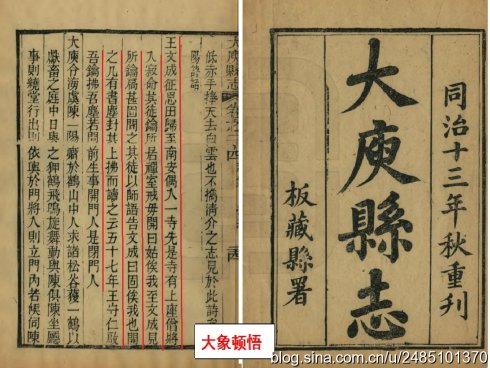 同治十三年秋重刊
大庾縣志
板藏縣署
大庾縣志
低赤手捧天去白雲也不搆清介之志見於此詩
王文成征思田歸至南安偶入一寺先是寺有上座僧將
入寂命其徒鑰所居禪室戒毋開曰姑俟我至文成見
所鑰扃甚固問之其徒以師語告文成曰固俟我也開
之几有書塵封其上拂而讀之云五十七年王守仁啟
吾鑰拂吾塵若問前生事開門人是閉門人
大庾分陳一陽於鶴山中人求諸松谷獲一鶴以
獻畜之庭中日與之狎飛鳴旋舞動與陳俱陳坐廳
事則繞堂行出則依輿於門將入則立門內者候伺陳
大象顿悟
blog.sina.com.cn/u/2485101370